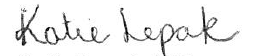 Katie Lepak